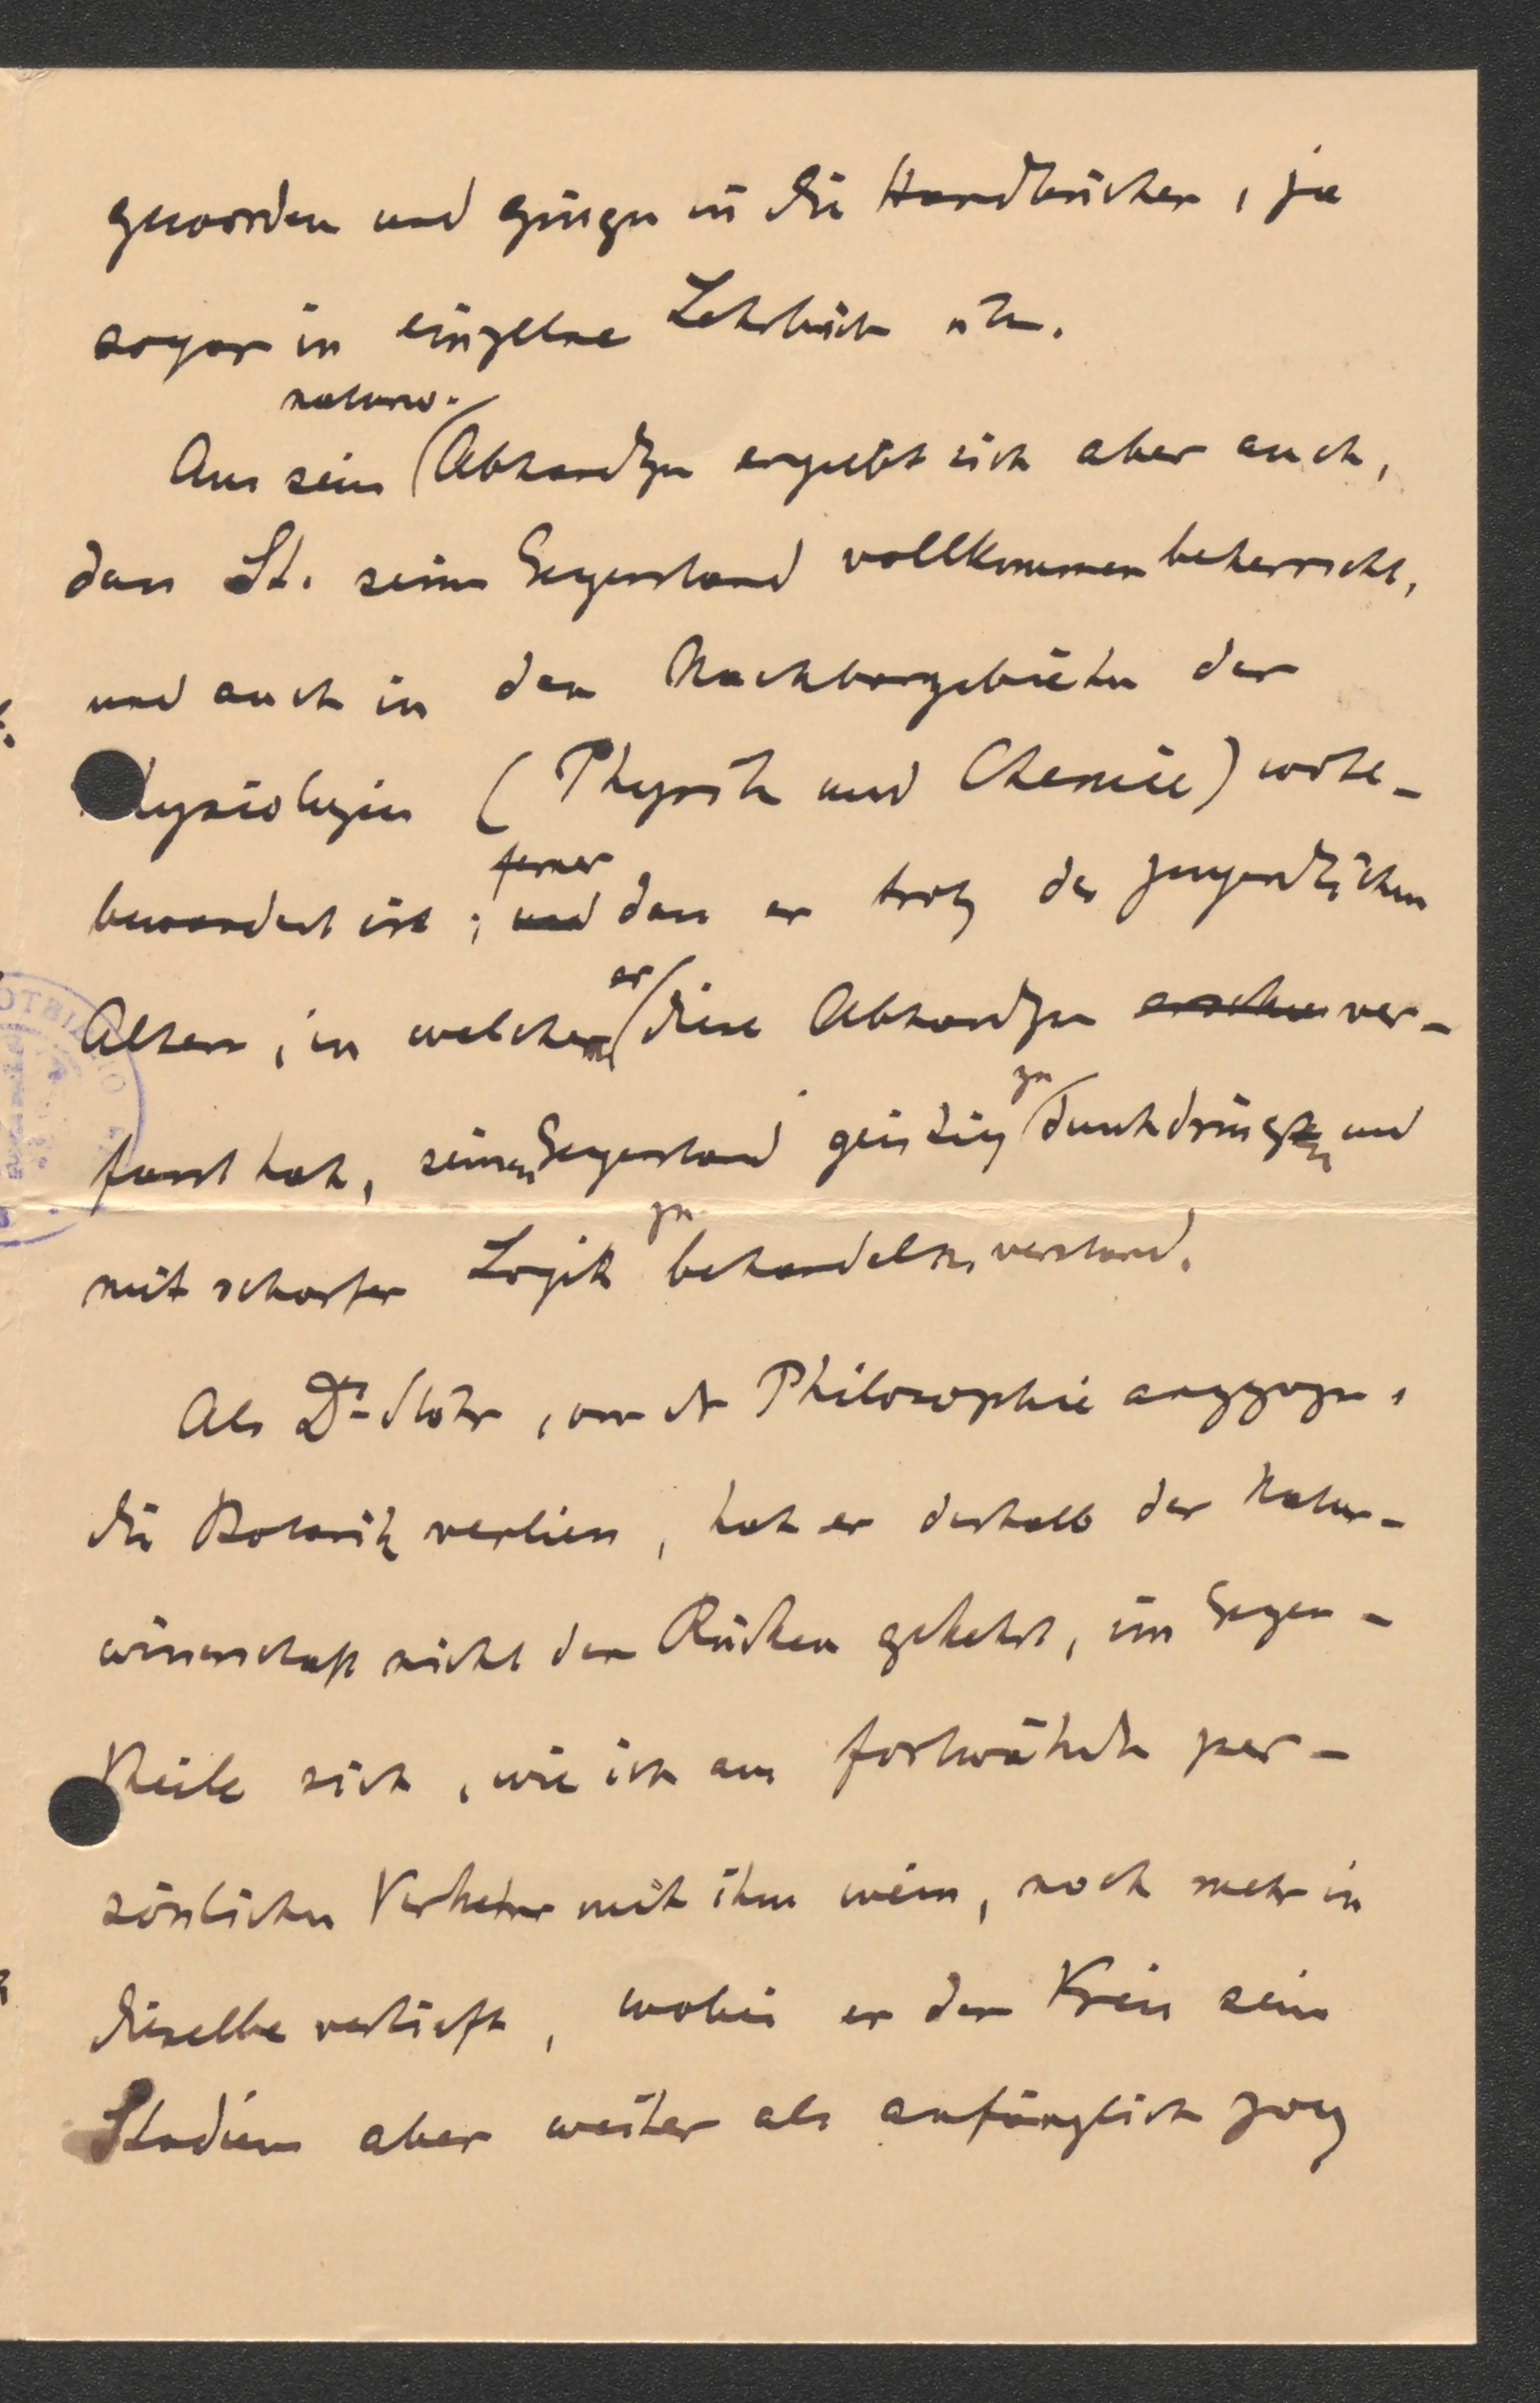 geworden und gingen in die Handbücher, ja
sogar in einzelne Lehrbücher über.
naturw.
Aus seinen Abhandlgen ergiebt sich aber auch,
dass St. seinen Gegenstand vollkommen beherrscht,
und auch in den Nachbargebieten der
Physiologie (Physik und Chemie) wohl-
ferner
bewandert ist; und dass er trotz des jugendlichen
er
Alters, in welchem diese Abhandlgen ver-
zu
fasst hat, seinen Gegenstand geistig durchdringen und
zu
mit scharfer Logik behandeln verstand.
Als Dr. Stöhr, von der Philosophie angezogen,
die Botanik verliess, hat er deshalb der Natur-
wissenschaft nicht den Rücken gekehrt, im Gegen-
theile sich, wie ich aus fortwährendem per-
sönlichen Verkehre mit ihm weiss, noch mehr in
dieselbe vertieft, wobei er den Kreis seiner
Studien aber weiter als anfänglich zog